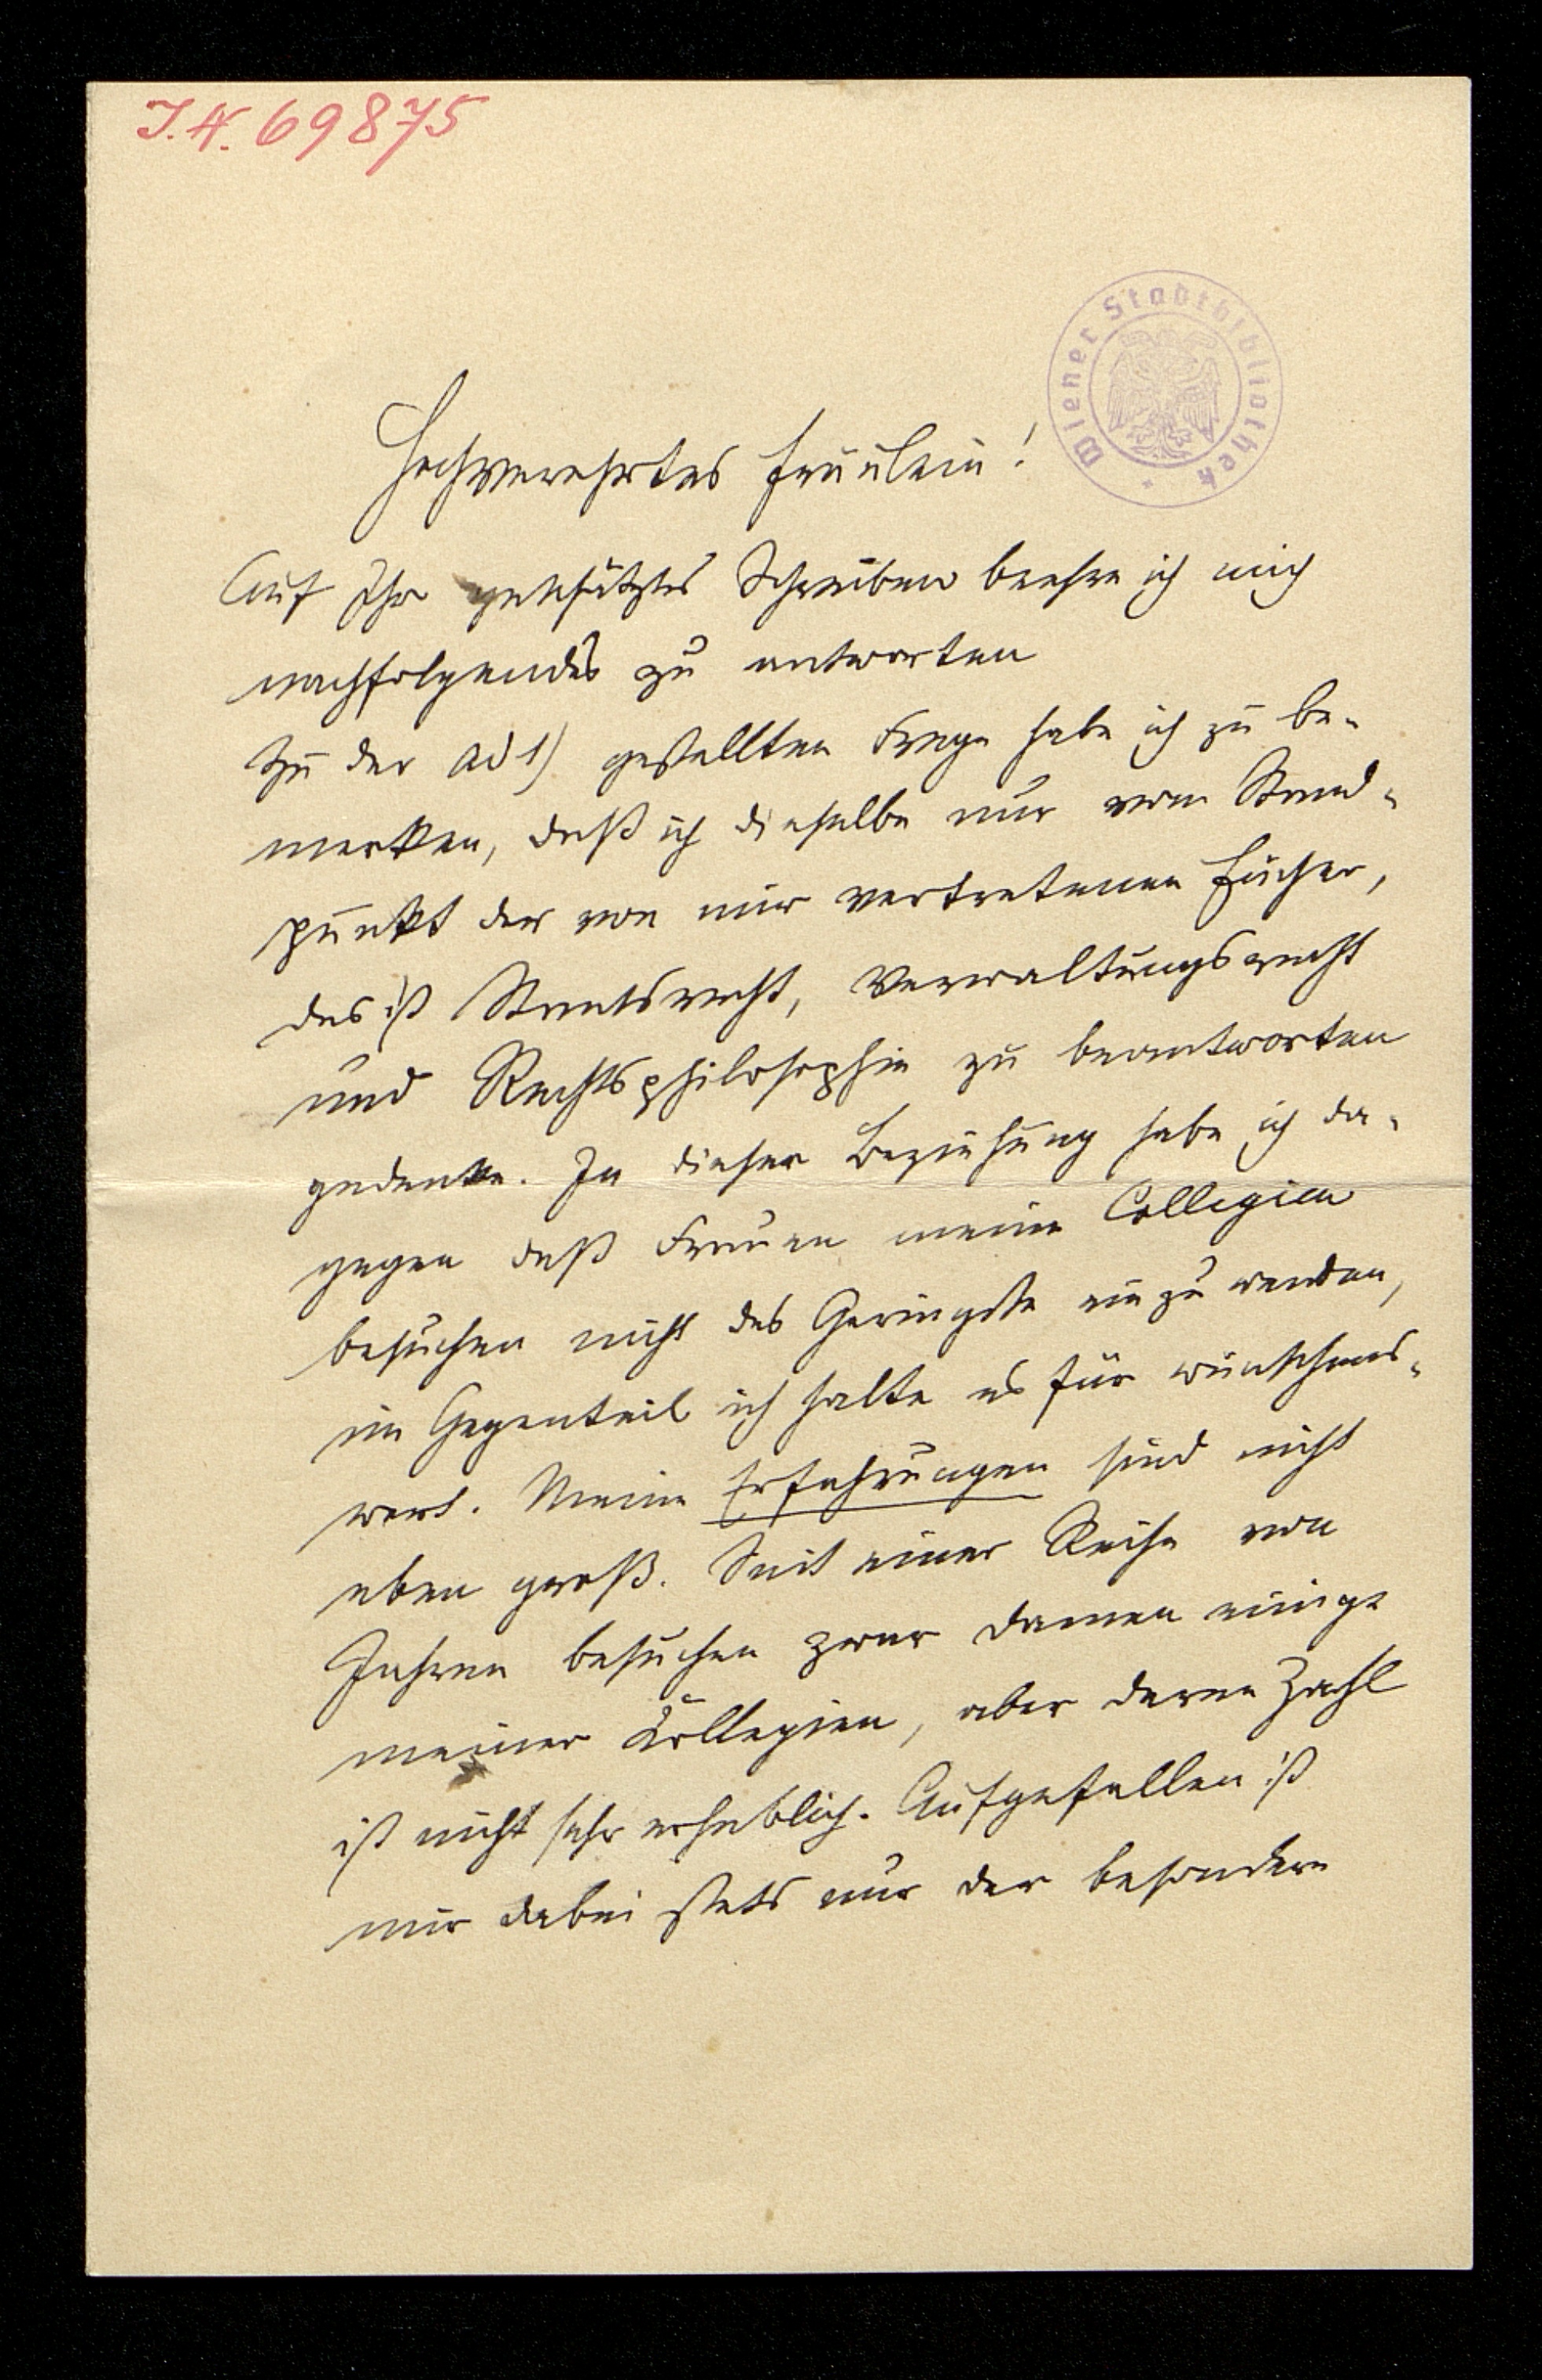 I.N. 69875
Wiener Stadtbibliothek
Hochverehrtes Fräulein!
Auf Ihr geschätztes Schreiben beehre ich mich
nachfolgendes zu antworten
Zu der ad 1) gestellten Frage habe ich zu be-
merken, daß ich dieselbe nur vom Stand-
punkt der von mir vertretenen Fächer,
das ist Staatsrecht, Verwaltungsrecht
und Rechtsphilosophie zu beantworten
gedenke. In dieser Beziehung habe ich da-
gegen daß Frauen meine Collegien
besuchen nicht das Geringste einzuwenden,
im Gegenteil ich halte es für wünschens-
wert. Meine Erfahrungen sind nicht
eben groß. Seit einer Reihe von
Jahren besuchen zwar Damen einige
meiner Collegien, aber deren Zahl
ist nicht sehr erheblich. Aufgefallen ist
mir dabei stets nur der besondere